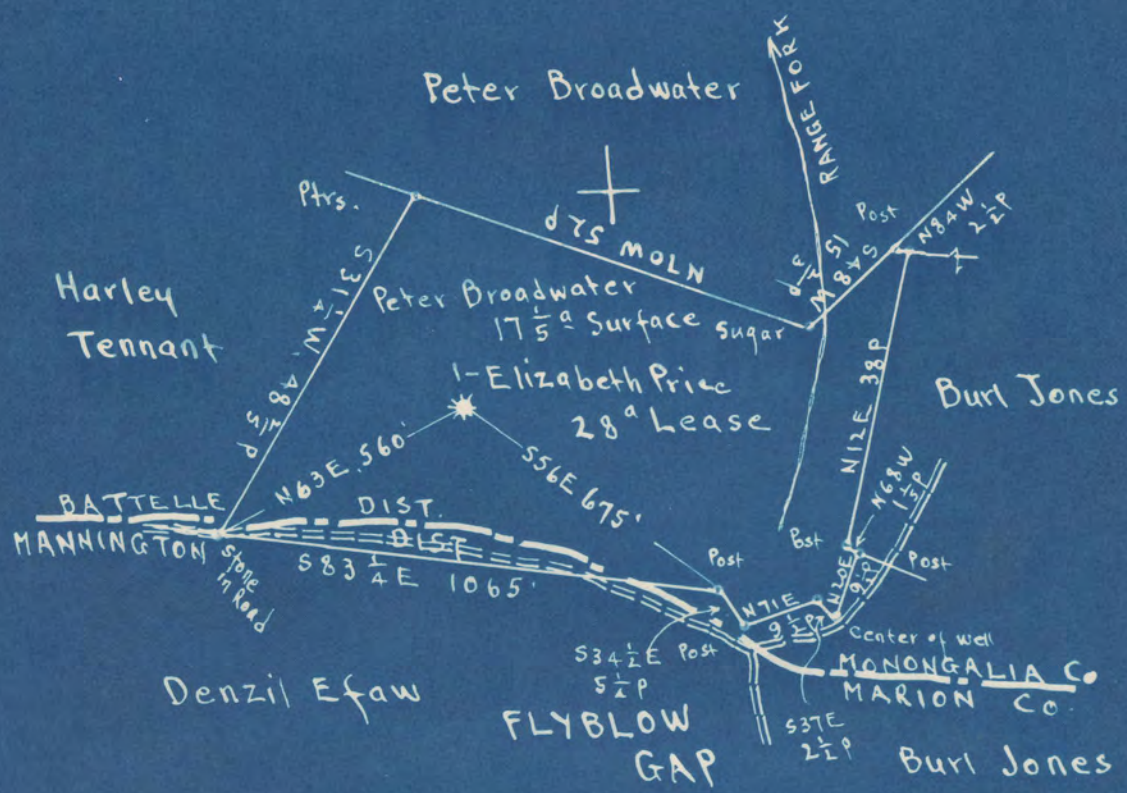 Peter Broadwater
RANGE FORK
Ptrs.
Post
N84W
2 1/2 P
N70W 52P
S48W
15 1/2 P
S31 1/4 W 48 1/2 P
Harley
Tennant
Peter Broadwater
17 1/5 a Surface
Sugar
1-Elizabeth Price
28 a Lease
Burl Jones
N12E 38P
N63E 560'
S56E 675'
N68W
1 1/5 P
BATTELLE DIST.
MANNINGTON DIST
Stone
in Road
S83 1/4 E 1065'
Post
Post
Post
N20E
9P
N71E
9 1/2 P
Center of well
S34 1/2 E
5 1/4 P
Post
MONONGALIA Co.
MARION Co.
Denzil Efaw
FLYBLOW
GAP
S37E
2 1/2 P
Burl Jones